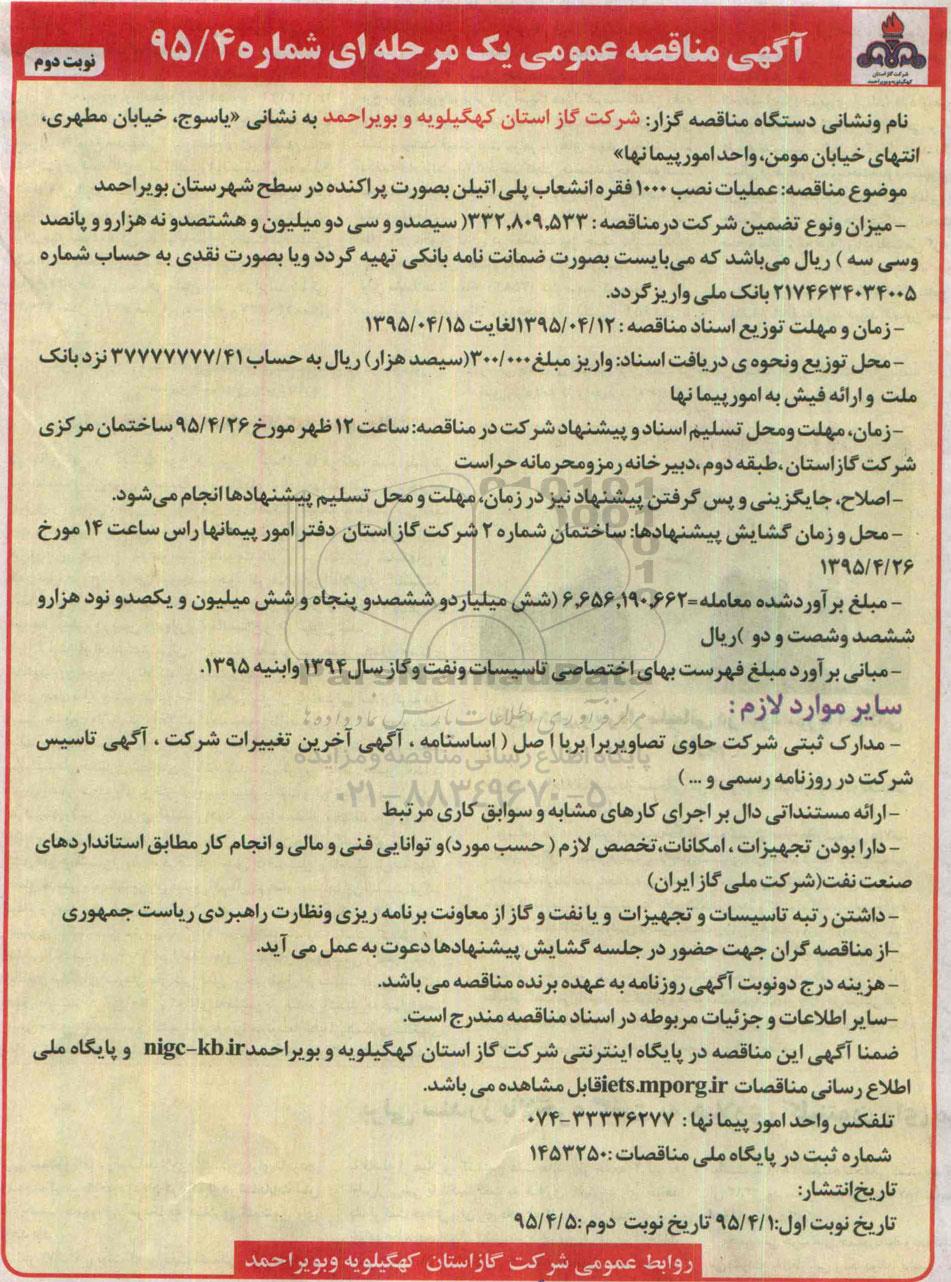 آگهی مناقصه عمومی یک مرحله ای شماره ۹۵/۴
نوبت دوم
شرکت گاز استان
کهگیلویه و بویراحمد
نام ونشانی دستگاه مناقصه گزار: شرکت گاز استان کهگیلویه و بویراحمد به نشانی «یاسوج، خیابان مطهری،
انتهای خیابان مومن، واحد امور پیما نها»
موضوع مناقصه: عملیات نصب ۱۰۰۰ فقره انشعاب پلی اتیلن بصورت پراکنده در سطح شهرستان بویراحمد
- میزان ونوع تضمین شرکت درمناقصه : ۳۳۲,۸۰۹,۵۳۳( سیصدو و سی دو میلیون و هشتصدو نه هزارو و پانصد
وسی سه ) ریال می‌باشد که می‌بایست بصورت ضمانت نامه بانکی تهیه گردد ویا بصورت نقدی به حساب شماره
۲۱۷۴۶۳۴۰۳۴۰۰۵ بانک ملی واریزگردد.
- زمان و مهلت توزیع اسناد مناقصه : ۱۳۹۵/۰۴/۱۲لغایت ۱۳۹۵/۰۴/۱۵
- محل توزیع ونحوه ی دریافت اسناد: واریز مبلغ۳۰۰/۰۰۰(سیصد هزار) ریال به حساب ۳۷۷۷۷۷۷۷/۴۱ نزد بانک
ملت و ارائه فیش به امورپیما نها
- زمان، مهلت ومحل تسلیم اسناد و پیشنهاد شرکت در مناقصه: ساعت ۱۲ ظهر مورخ ۹۵/۴/۲۶ ساختمان مرکزی
شرکت گازاستان ،طبقه دوم ،دبیرخانه رمزومحرمانه حراست
- اصلاح، جایگزینی و پس گرفتن پیشنهاد نیز در زمان، مهلت و محل تسلیم پیشنهادها انجام می‌شود.
- محل و زمان گشایش پیشنهادها: ساختمان شماره ۲ شرکت گاز استان دفتر امور پیمانها راس ساعت ۱۴ مورخ
۱۳۹۵/۴/۲۶
- مبلغ برآوردشده معامله=۶,۶۵۶,۱۹۰,۶۶۲ (شش میلیاردو ششصدو پنجاه و شش میلیون و یکصدو نود هزارو
ششصد وشصت و دو )ریال
- مبانی برآورد مبلغ فهرست بهای اختصاصی تاسیسات ونفت وگاز سال۱۳۹۴ وابنیه ۱۳۹۵.
سایر موارد لازم :
- مدارک ثبتی شرکت حاوی تصاویربرا بربا ا صل ( اساسنامه ، آگهی آخرین تغییرات شرکت ، آگهی تاسیس
شرکت در روزنامه رسمی و ... )
- ارائه مستنداتی دال بر اجرای کارهای مشابه و سوابق کاری مرتبط
- دارا بودن تجهیزات ، امکانات،تخصص لازم ( حسب مورد)و توانایی فنی و مالی و انجام کار مطابق استانداردهای
صنعت نفت(شرکت ملی گاز ایران)
- داشتن رتبه تاسیسات و تجهیزات و یا نفت و گاز از معاونت برنامه ریزی ونظارت راهبردی ریاست جمهوری
-از مناقصه گران جهت حضور در جلسه گشایش پیشنهادها دعوت به عمل می آید.
- هزینه درج دونوبت آگهی روزنامه به عهده برنده مناقصه می باشد.
-سایر اطلاعات و جزئیات مربوطه در اسناد مناقصه مندرج است.
ضمنا آگهی این مناقصه در پایگاه اینترنتی شرکت گاز استان کهگیلویه و بویراحمدnigc-kb.ir و پایگاه ملی
اطلاع رسانی مناقصات iets.mporg.irقابل مشاهده می باشد.
تلفکس واحد امور پیما نها : ۳۳۳۳۶۲۷۷-۰۷۴
شماره ثبت در پایگاه ملی مناقصات :۱۴۵۳۲۵۰
تاریخ‌انتشار:
تاریخ نوبت اول:۹۵/۴/۱ تاریخ نوبت دوم :۹۵/۴/۵
روابط عمومی شرکت گازاستان کهگیلویه وبویراحمد
ParsNamadData
پایگاه اطلاع رسانی مناقصه و مزایده
۰۲۱-۸۸۳۴۹۶۷۰-۵